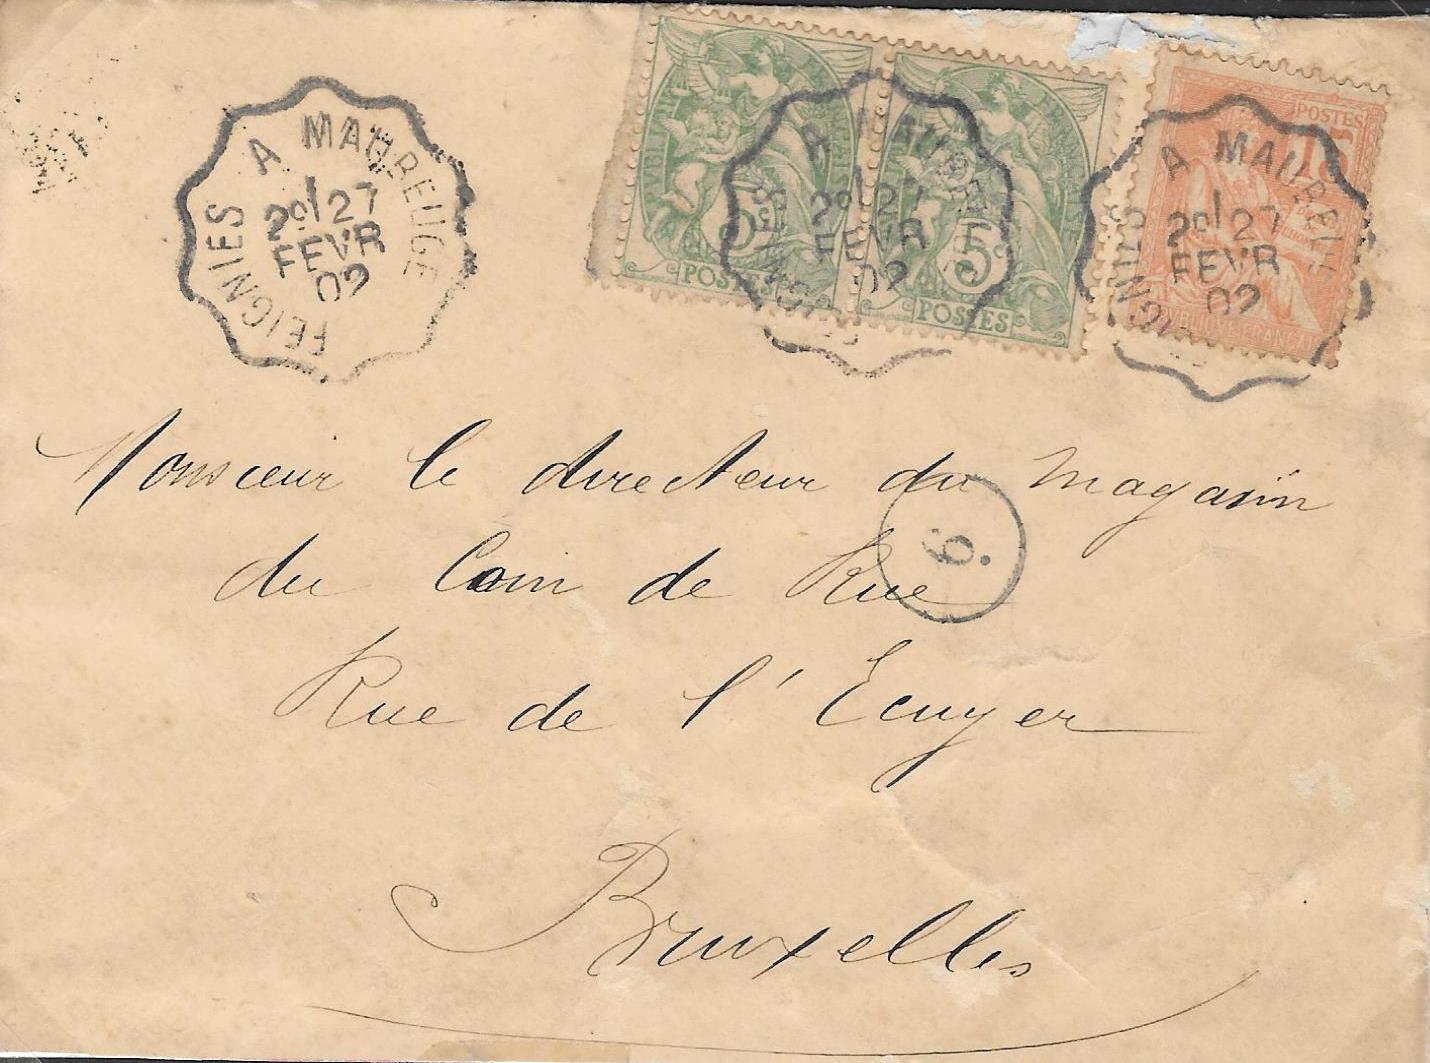 FEIGNIES A MAUBEUGE
2º/27
FEVR
02
5c
POSTES
5c
POSTES
FRANÇAISE
A MAUBEUGE
2º/27
FEVR
02
POSTES
15
A MAUBEUGE
2º/27
FEVR
02
Monsieur le directeur du Magasin
6.
du Coin de Rue
Rue de l'Ecuyer
Bruxelles